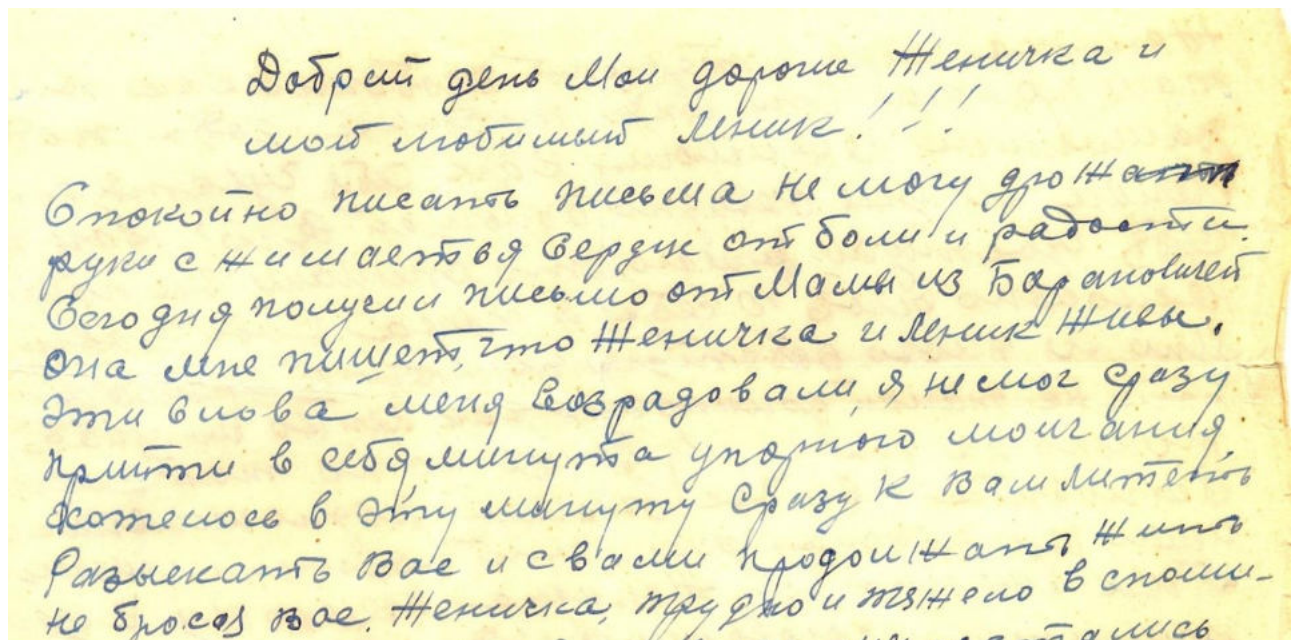 Добрий день Мои дорогие Женичка и
мой любимый Леник!!!
Спокойно писать письма не могу дрожат
руки сжимаетья Сердце от боли и радости.
Сегодня получил письмо от Мамы из Барановичей
она мне пишет, что Женичка и Леник Живы.
Эти Слова меня Возрадовали, я не мог Сразу
прийти в себя минута упорного молчания,
хотелось в Эту минуту Сразу к Вам
Разыскать Вас и с вами продолжать Жить
не бросая Вас. Женичка, трудно и тяжело вспоми-